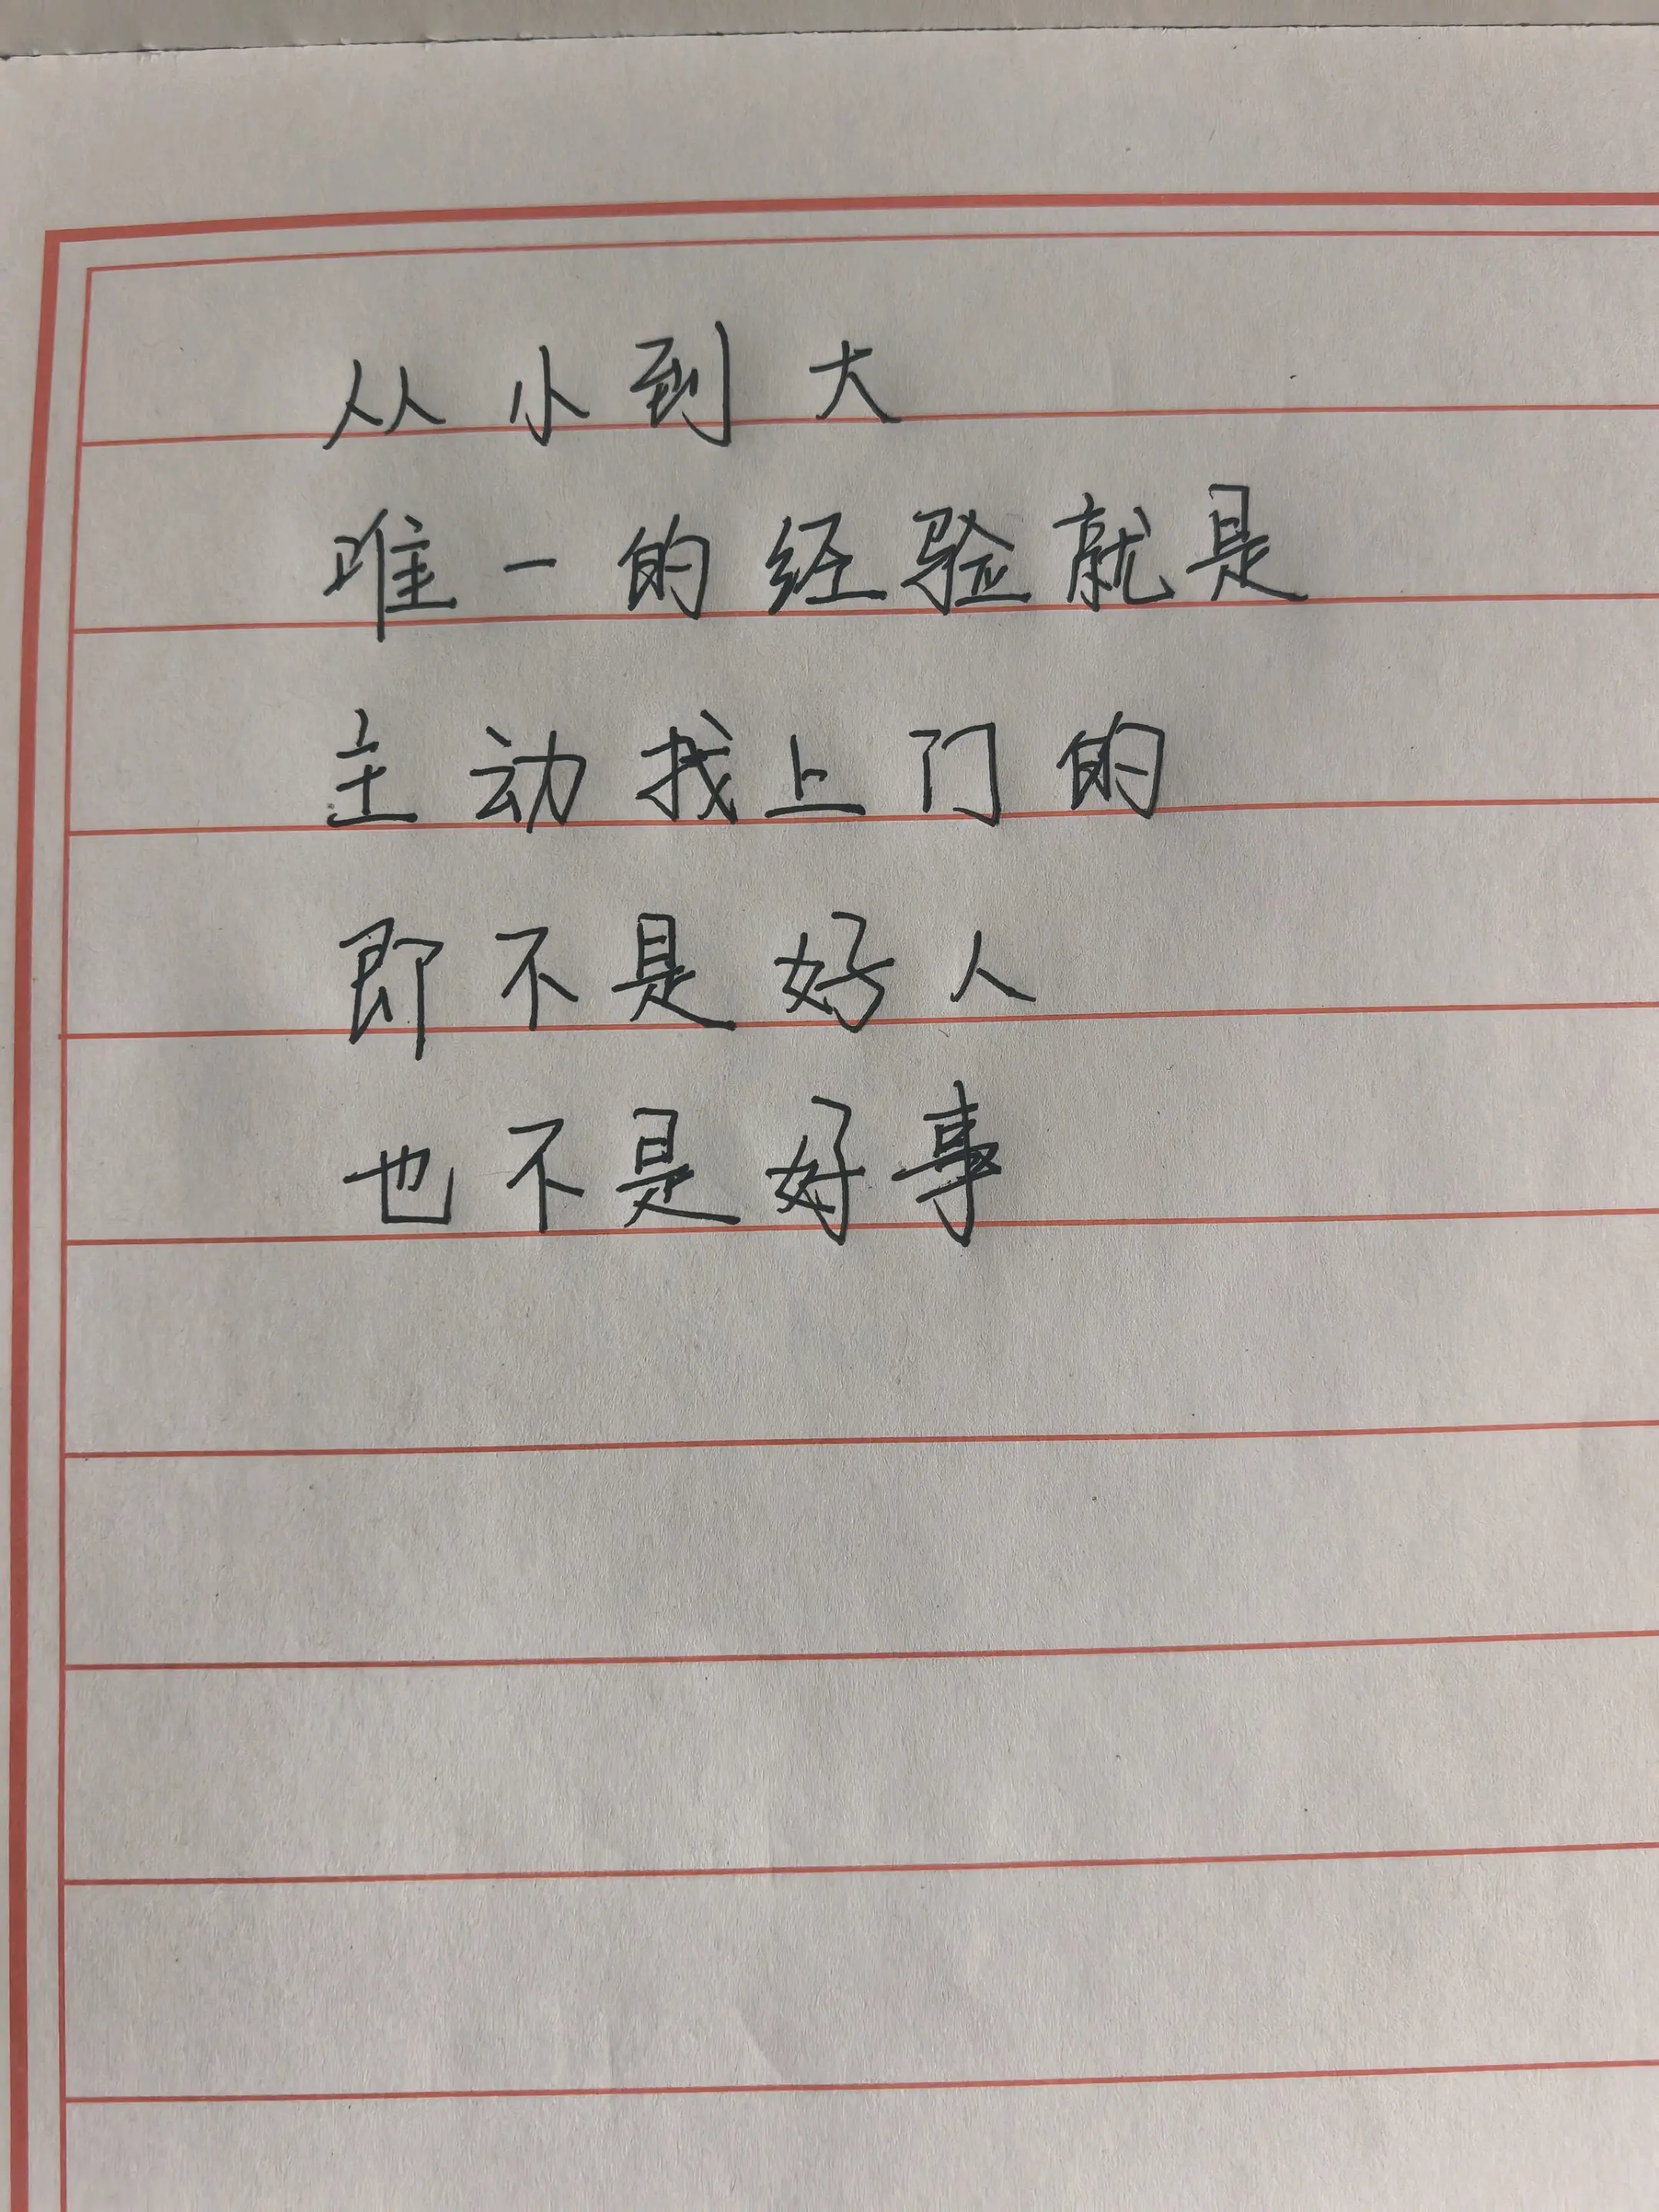 从小到大
唯一的经验就是
主动找上门的
即不是好人
也不是好事